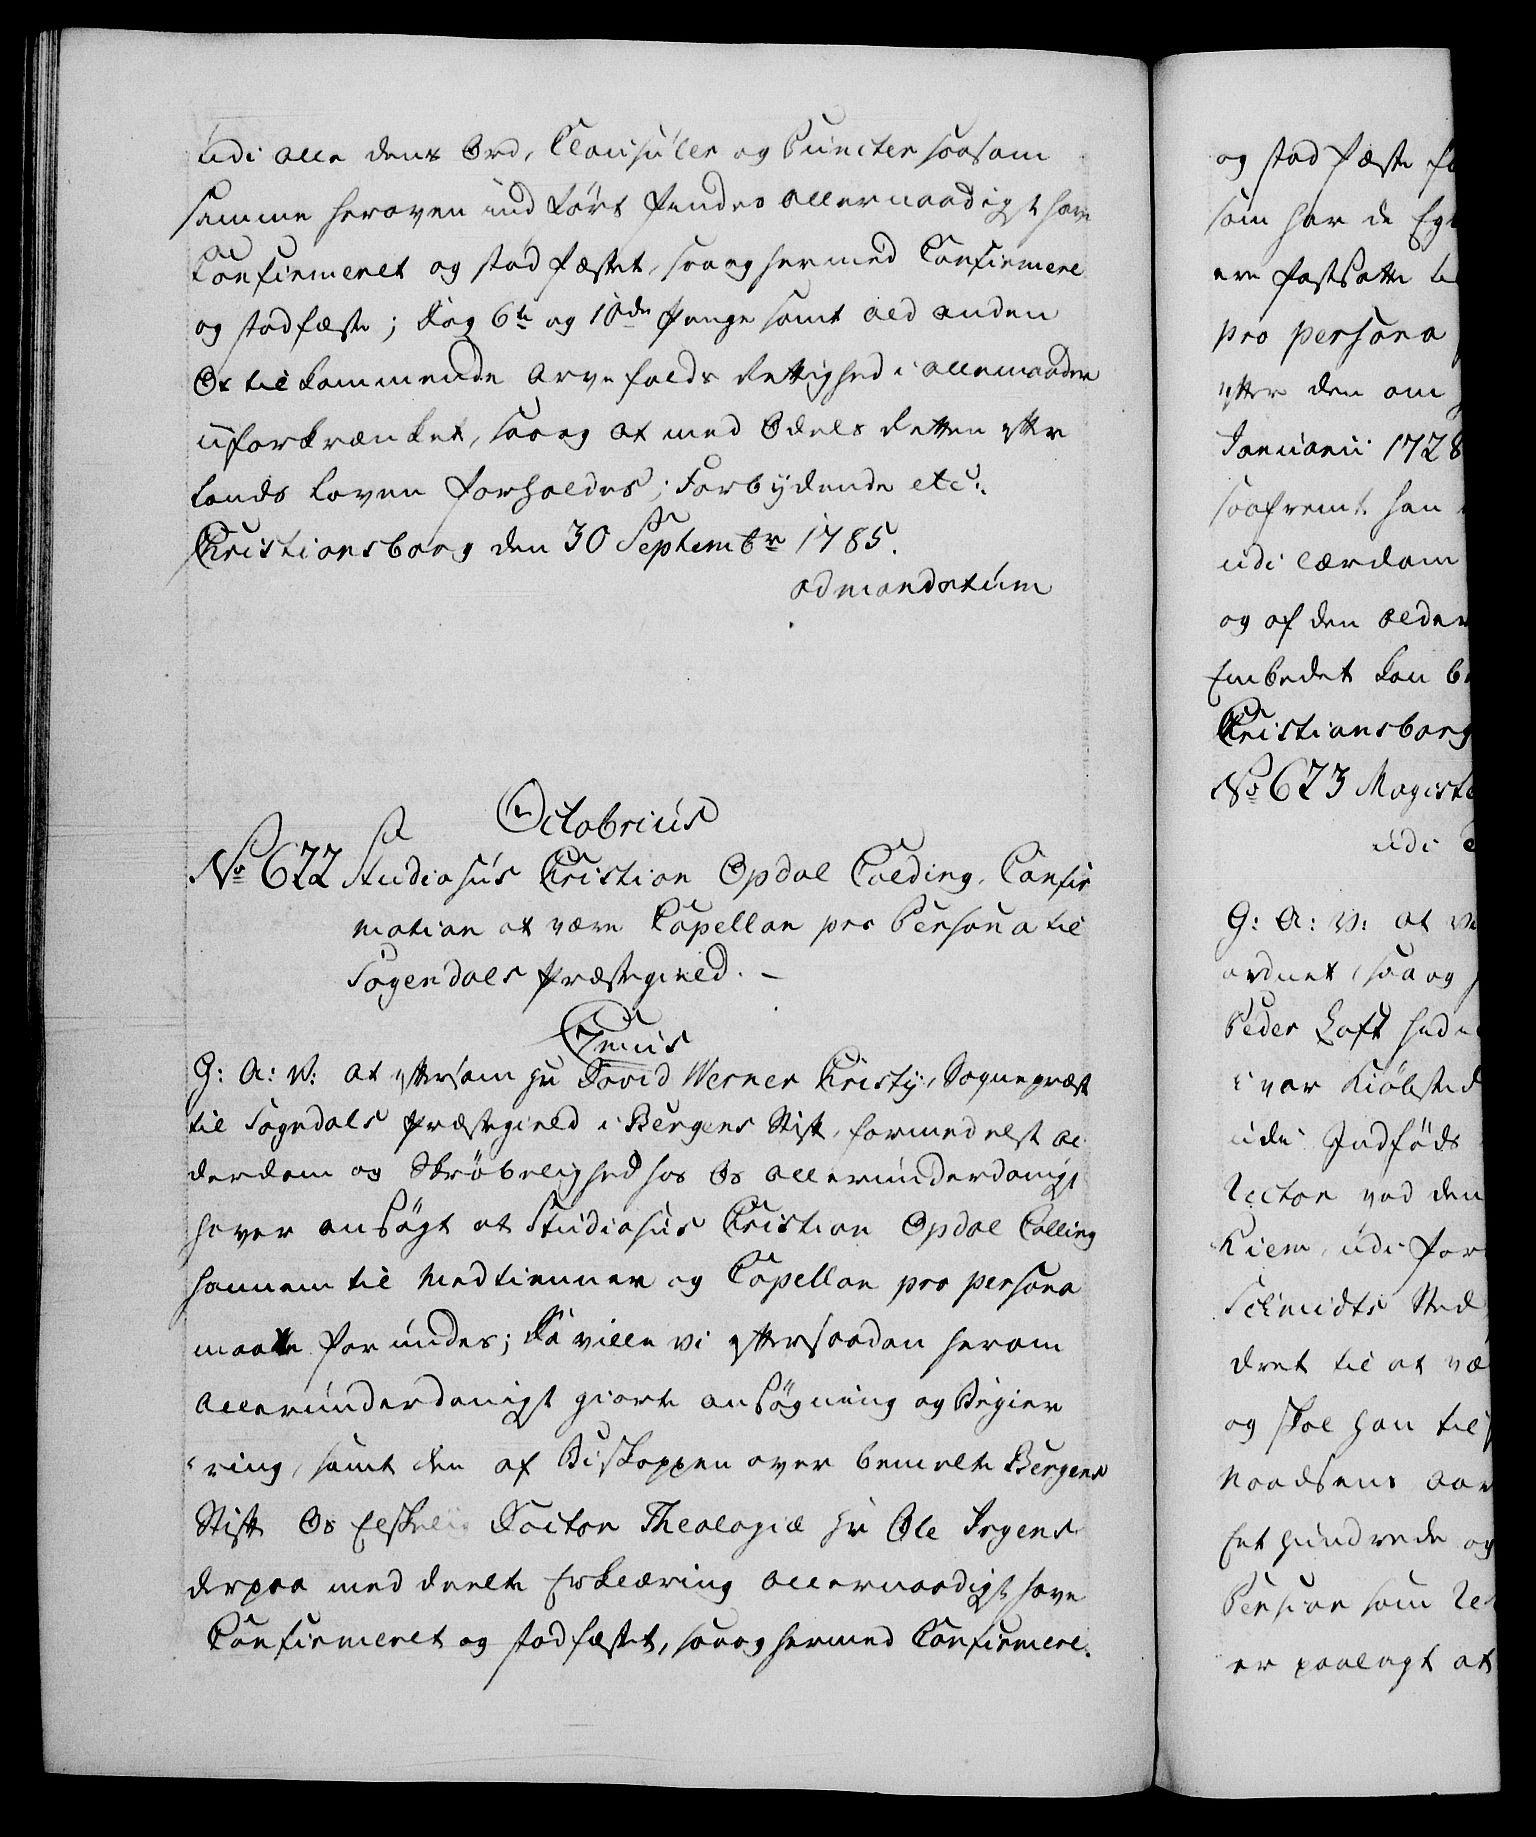 udi alle dens Ord, Clausuler og Puncter saasom
samme heroven indført findes allernaadigst have
Confirmeret og stadfæstet, saa og hermed Confirmere
og stadfæste; Dog 6te og 10de Penge samt ald anden
Os tilkommende Arvefalds Rettighed i allemaader
uforkrænket, saa og at med Odels Retten efter
Lands Loven forholdes; Forbydende etc:.
Christiansborg den 30 Septembr 1785.
ad mandatum
Octobrius
No 622 Studiosus Christian Opdal Colding, Confir
mation at være Capellan pro Persona til
Sogendals Præstegield. –
Primus
G: A: V: at eftersom Hr David Werner Christy, Sognepræst
til Sogndals Præstegield i Bergens Stift, formedelst Al
derdom og Skrøbelighed hos Os allerunderdanigst
haver ansøgt at Studiosus Christian Opdal Colling
hannem til Medtienner og Capellan pro persona
maatte forundes; Da ville vi efter saadan herom
allerunderdanigst giorte ansøgning og Begier
ring, samt den af Biskoppen over bemelte Bergens
Stift Os Elskelig Doctor Theologiæ Hr Ole Irgens
derpaa meddeelte Erklæring allernaadigst have
Confirmeret og stadfæstet, saa og hermed Confirmere.
og stadfæste
som har de
ere fastsatte
pro persona
efter den om
Januarii 1728
saafremt han
udi Lærdom
og af den alder
Embedet kan
Christiansborg
No 623 Magister
udi
G: A: V: at vi
ordnet, saa og
Peder Loft
i vor Kiøbsted
udi Indføds
Rector ved den
Riem, udi for
Schmidts Sted
dret til at væ
og skal han til
Naadsens Aar
Eet hundrede og
Pension som
er paalagt at